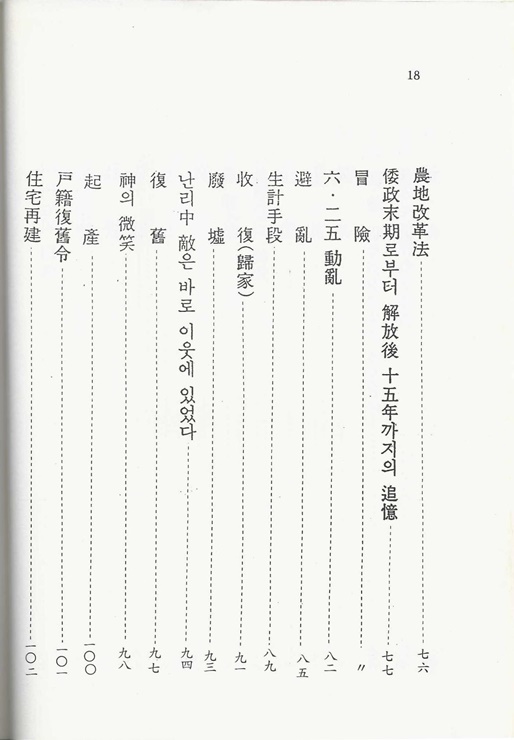 18
農地改革法 七六
倭政末期로부터 解放後 十五年까지의 追憶 七七
冒險 〃
六·二五 動亂 八二
避亂 八五
生計手段 八九
收復(歸家) 九一
廢墟 九三
난리中 敵은 바로 이웃에 있었다 九四
復舊 九七
神의 微笑 九八
起產 一〇〇
戶籍復舊令 一〇一
住宅再建 一〇二